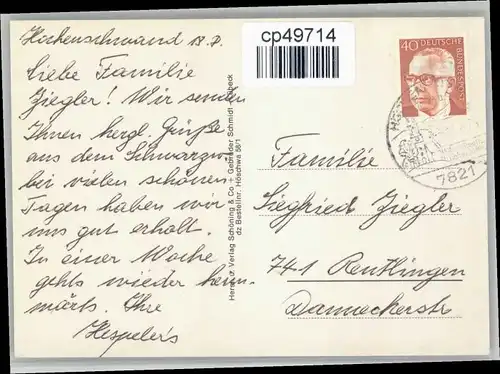 Höchenschwand 18.P.
Liebe Familie
Ziegler! Wir senden
Ihnen hergl. Grüße
aus dem Schwarzwa.
bei vielen schönen
Tagen haben wir
uns gut erholt.
In einer Woche
gehts wieder heim-
wärts. Ihre
Hespeler's
Herst. u. Verlag Schöning & Co + Gebrüder Schmidt Lübeck
dz Bestellnr. Höschwa 66/1
cp49714
40 DEUTSCHE
BUNDESPOST
7821
Familie
Siegfried Ziegler
741 Reutlingen
Danneckerstr